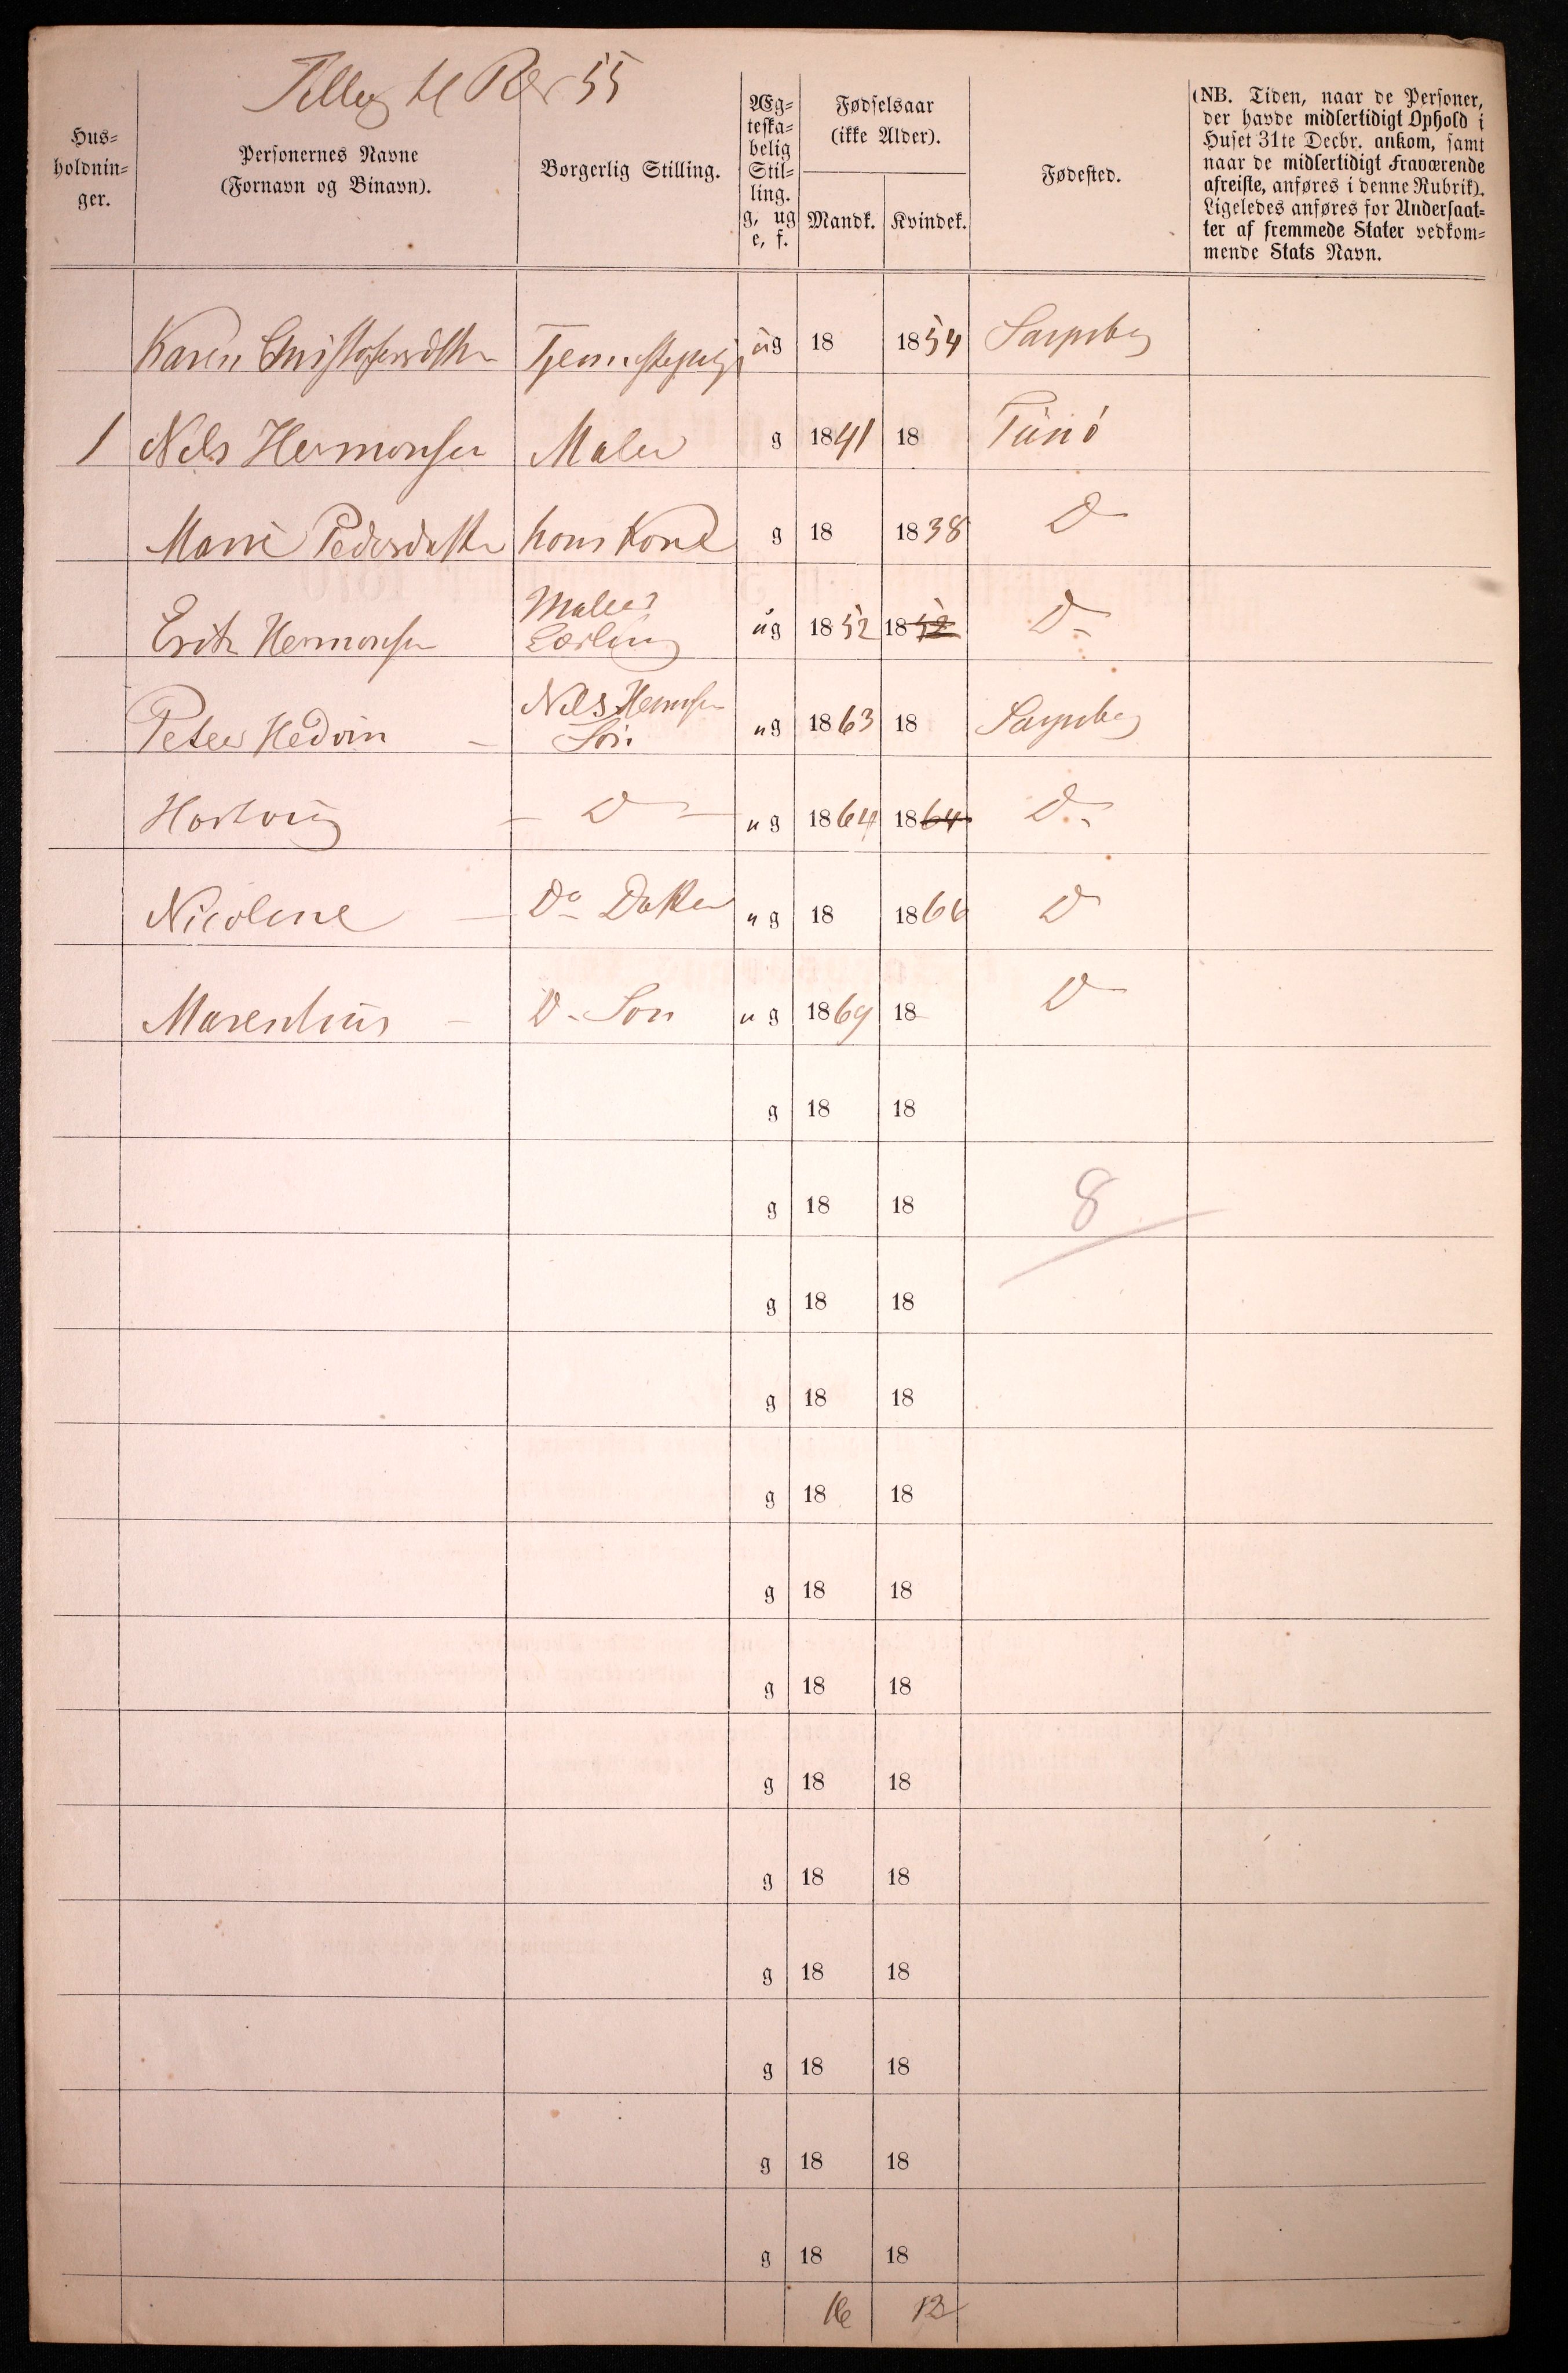 Tillæg til 55
Hus=
holdnin=
ger.
Personernes Navne
(Fornavn og Binavn).
Borgerlig Stilling.
Æg=
teska=
belig
Stil=
ling.
g, ug
e, f.
Fødselsaar
(ikke Alder).
Mandk.
Kvindek.
Fødested.
(NB. Tiden, naar de Personer,
der havde midlertidigt Ophold i
Huset 31te Decbr. ankom, samt
naar de midlertidigt Fraværende
afreiste, anføres i denne Rubrik).
Ligeledes anføres for Undersaat=
ter af fremmede Stater vedkom=
mende Stats Navn.
Karen ug 18 1854 Sarpsborg
1 Nels Hermansen Maler g 1841 18 Tünö
Marie Pedersdatter hans Kone g 18 1838 D
Maler
Erik Hermansen Lærling ug 1852 1852 D
Nels Hermsen
Peter Hedvin – Sön ug 1863 18 Sarpsborg
Hartvig – D – ug 1864 1864 D
Nicoline – Do Datter ug 18 1866 D
Marenhius – D. Son ug 1869 18 D
g 18 18
g 18 18 8
g 18 18
g 18 18
g 18 18
g 18 18
g 18 18
g 18 18
g 18 18
g 18 18
g 18 18
g 18 18
g 18 18
16 12